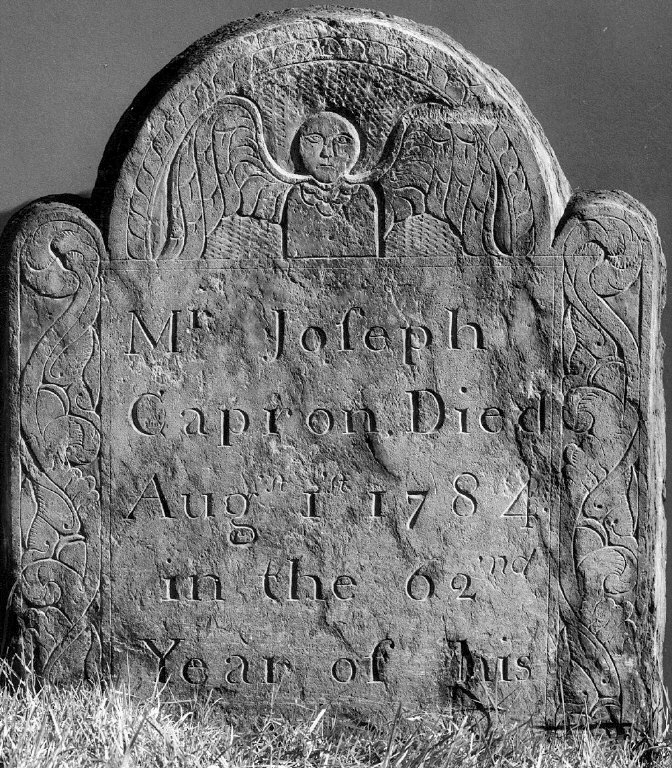 Mʳ Joſeph
Capron Died
Augˢᵗ 1ˢᵗ 1784
in the 62ⁿᵈ
Year of his